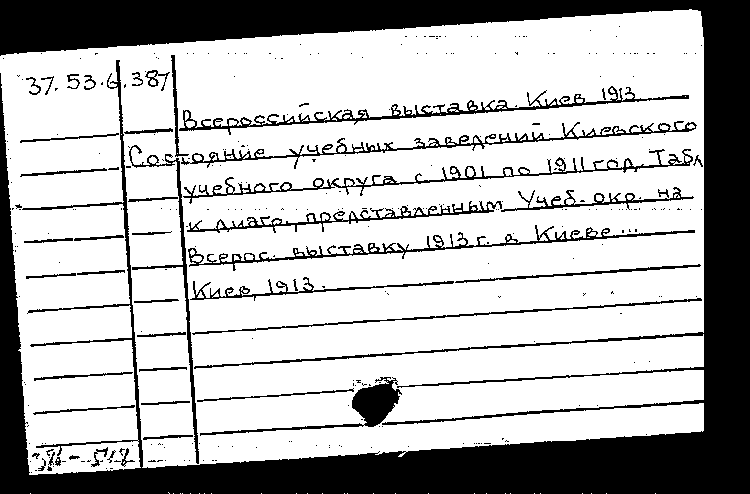 37.53.6.387
Всероссийская выставка. Киев 1913
Состояние учебных заведений Киевского
учебного округа с 1901 по 1911 год. Табл
к диагр., представленным Учеб. окр. на
Всерос. выставку 1913 г. в Киеве...
Киев, 1913.